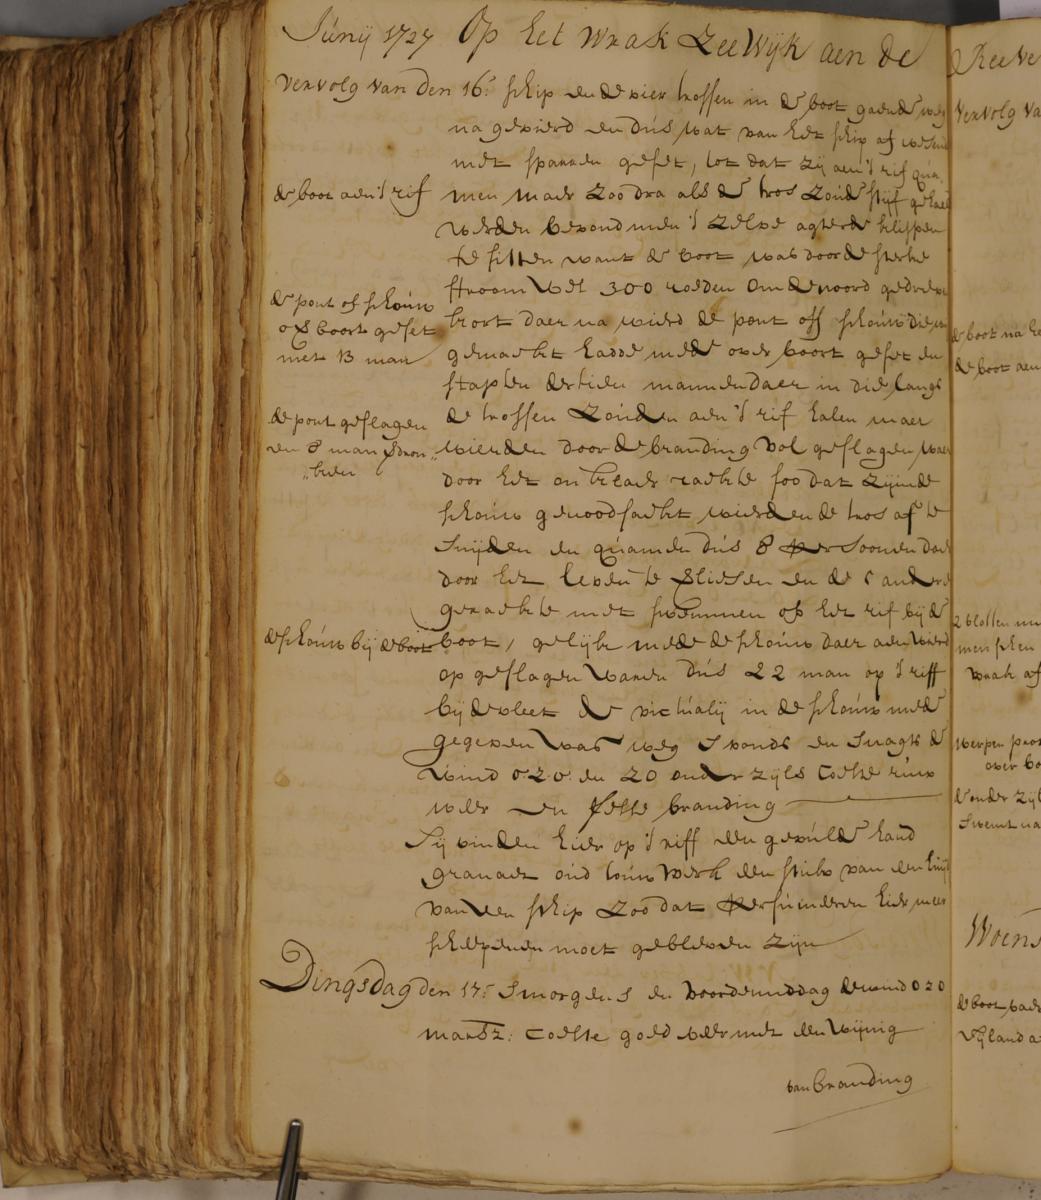 Junij 1727 Op het wrak Zeewijk aen de
vervolg van den 16:e schip ende vier trossen in de boot gaende weg
na gevierd en dus wat van het schip af
met sparren geset, tot dat zij aen 't rif qua
de boot aen 't rif
men maer zoo dra als de tros zoude stijf gehaelt
werden bevond men 't zelve agter de klippen
te sitten want de boot was door de sterke
stroom wel 300 roeden om de noord gedreven
de pont of schouw
over boort geset
met 13 man
kort daer na wierd de pont off schouw die
gemaekt hadde mede over boort geset en
stapten dertien mannen daer in die langs
de trossen zouden aen 't rif halen maer
de pont geslagen
en 8 man verdron„
„ken
wierden door de branding vol geslagen waer
door het onklaer raekte soo dat zij in de
schouw genoodsaekt wierden de tros af te
snijden en quamen dus 8 persoonen daer
door het leven te verliesen en de 5 andere
geraekte met swemmen op het rif bij de
de schouw bij de boot
boot, gelijk mede de schouw daer aen wierd
op geslagen waren dus 22 man op 't riff
bij de vleet de victualij in de schouw mede
gegeven was weg s'avonds en snagts de
wind OZO en ZO onder zijls coelte ruw
weer en felle branding
Sij vinden hier op 't riff een gevulde hand
granaet oud touwwerk een stuk van een huijd
van een schip zoo dat hier meer
scheepenen moet gebleven zijn
Dingsdag den 17:e Smorgens en voordemiddag de wind OZO
marsz: coelte goed weer met een wijnig
van branding
Reeve
vervolg va
de boot na he
de boot aen
2 vlotten
menschen
wrak af
werpen
over bo
de onder zijl
swemt na
Woens
de boot
eijland a